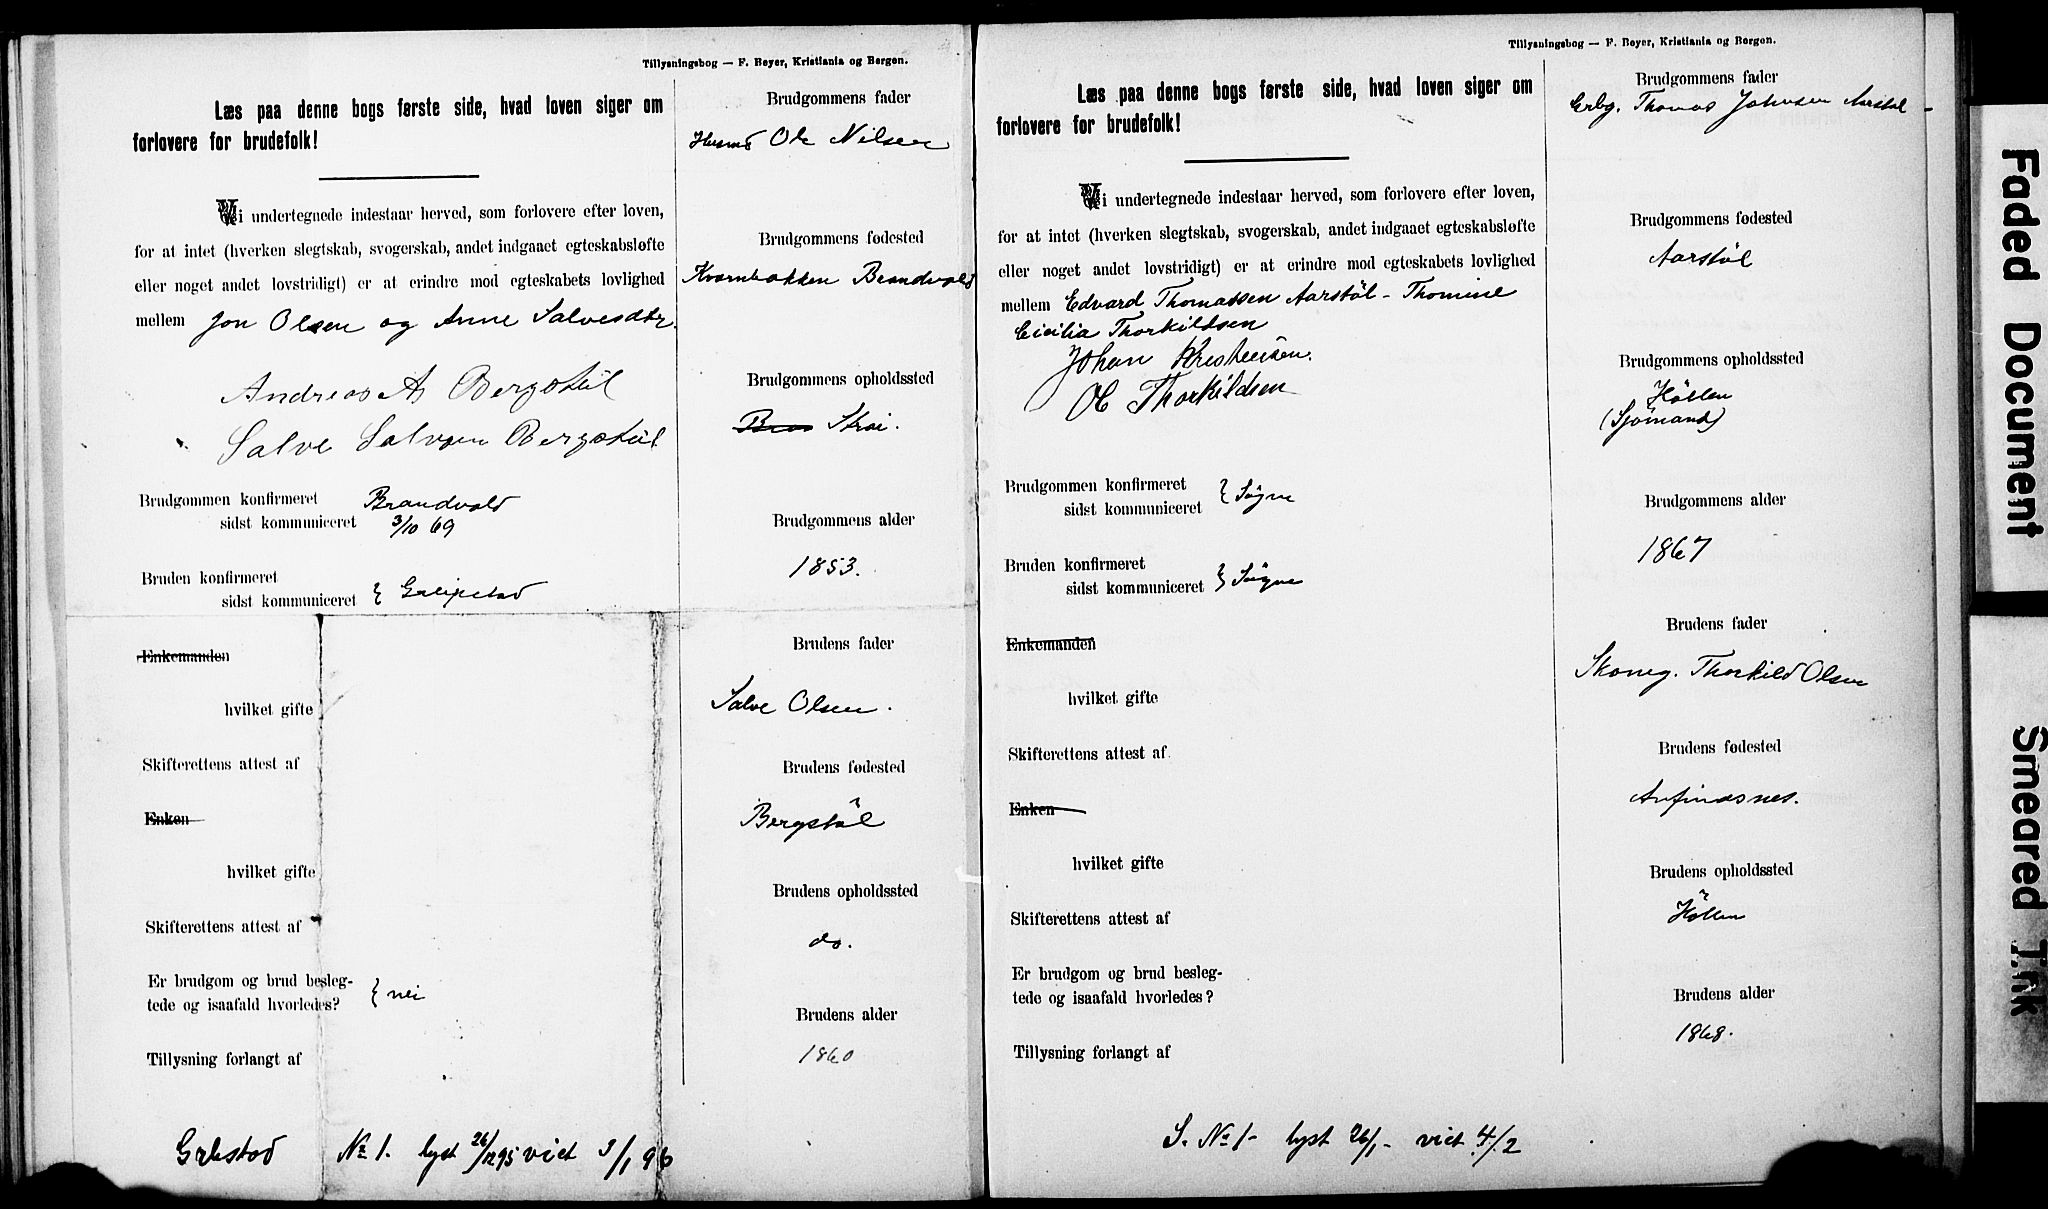 Tillysningsbog — F. Beyer, Kristiania og Bergen.
Læs paa denne bogs første side, hvad loven siger om
forlovere for brudefolk!
Vi undertegnede indestaar herved, som forlovere efter loven,
for at intet (hverken slegtskab, svogerskab, andet indgaaet egteskabsløfte
eller noget andet lovstridigt) er at erindre mod egteskabets lovlighed
mellem Jon Olsen og Anne Salvesdtr.
Andreas A Bergstöl
Salve Salvesen Bergstöl
Brudgommen konfirmeret Brandvold
sidst kommuniceret 3/10 69
Bruden konfirmeret
sidst kommuniceret }
Enkemanden
hvilket gifte
Skifterettens attest af
Enken
hvilket gifte
Skifterettens attest af
Er brudgom og brud besleg-
tede og isaafald hvorledes? } nei
Tillysning forlangt af
Brudgommens fader
Husmd Ole Nilsen
Brudgommens fødested
Kvarnbakken Brandvold
Brudgommens opholdssted
Strai.
Brudgommens alder
1853.
Brudens fader
Salve Olsen.
Brudens fødested
Bergstöl
Brudens opholdssted
do.
Brudens alder
1860
No 1. lyst 26/12 95 viet 3/1 96
Tillysningsbog — F. Beyer, Kristiania og Bergen.
Læs paa denne bogs første side, hvad loven siger om
forlovere for brudefolk!
Vi undertegnede indestaar herved, som forlovere efter loven,
for at intet (hverken slegtskab, svogerskab, andet indgaaet egteskabsløfte
eller noget andet lovstridigt) er at erindre mod egteskabets lovlighed
mellem Edvard Thomassen Aarstöl - Thomine
Cicilia Thorkildsen
Johan Kristensen.
Ol Thorkildsen
Brudgommen konfirmeret
sidst kommuniceret } Søgne
Bruden konfirmeret
sidst kommuniceret } Søgne
Enkemanden
hvilket gifte
Skifterettens attest af
Enken
hvilket gifte
Skifterettens attest af
Er brudgom og brud besleg-
tede og isaafald hvorledes?
Tillysning forlangt af
Brudgommens fader
Thomas Johnsen Aarstøl -
Brudgommens fødested
Aarstöl
Brudgommens opholdssted
Höllen
(Sjömand)
Brudgommens alder
1867
Brudens fader
Thorkild Olsen
Brudens fødested
Amfindsnes.
Brudens opholdssted
Höllen
Brudens alder
1868.
S. No 1- lyst 26/1- viet 4/2
Faded Document
Smeared Ink